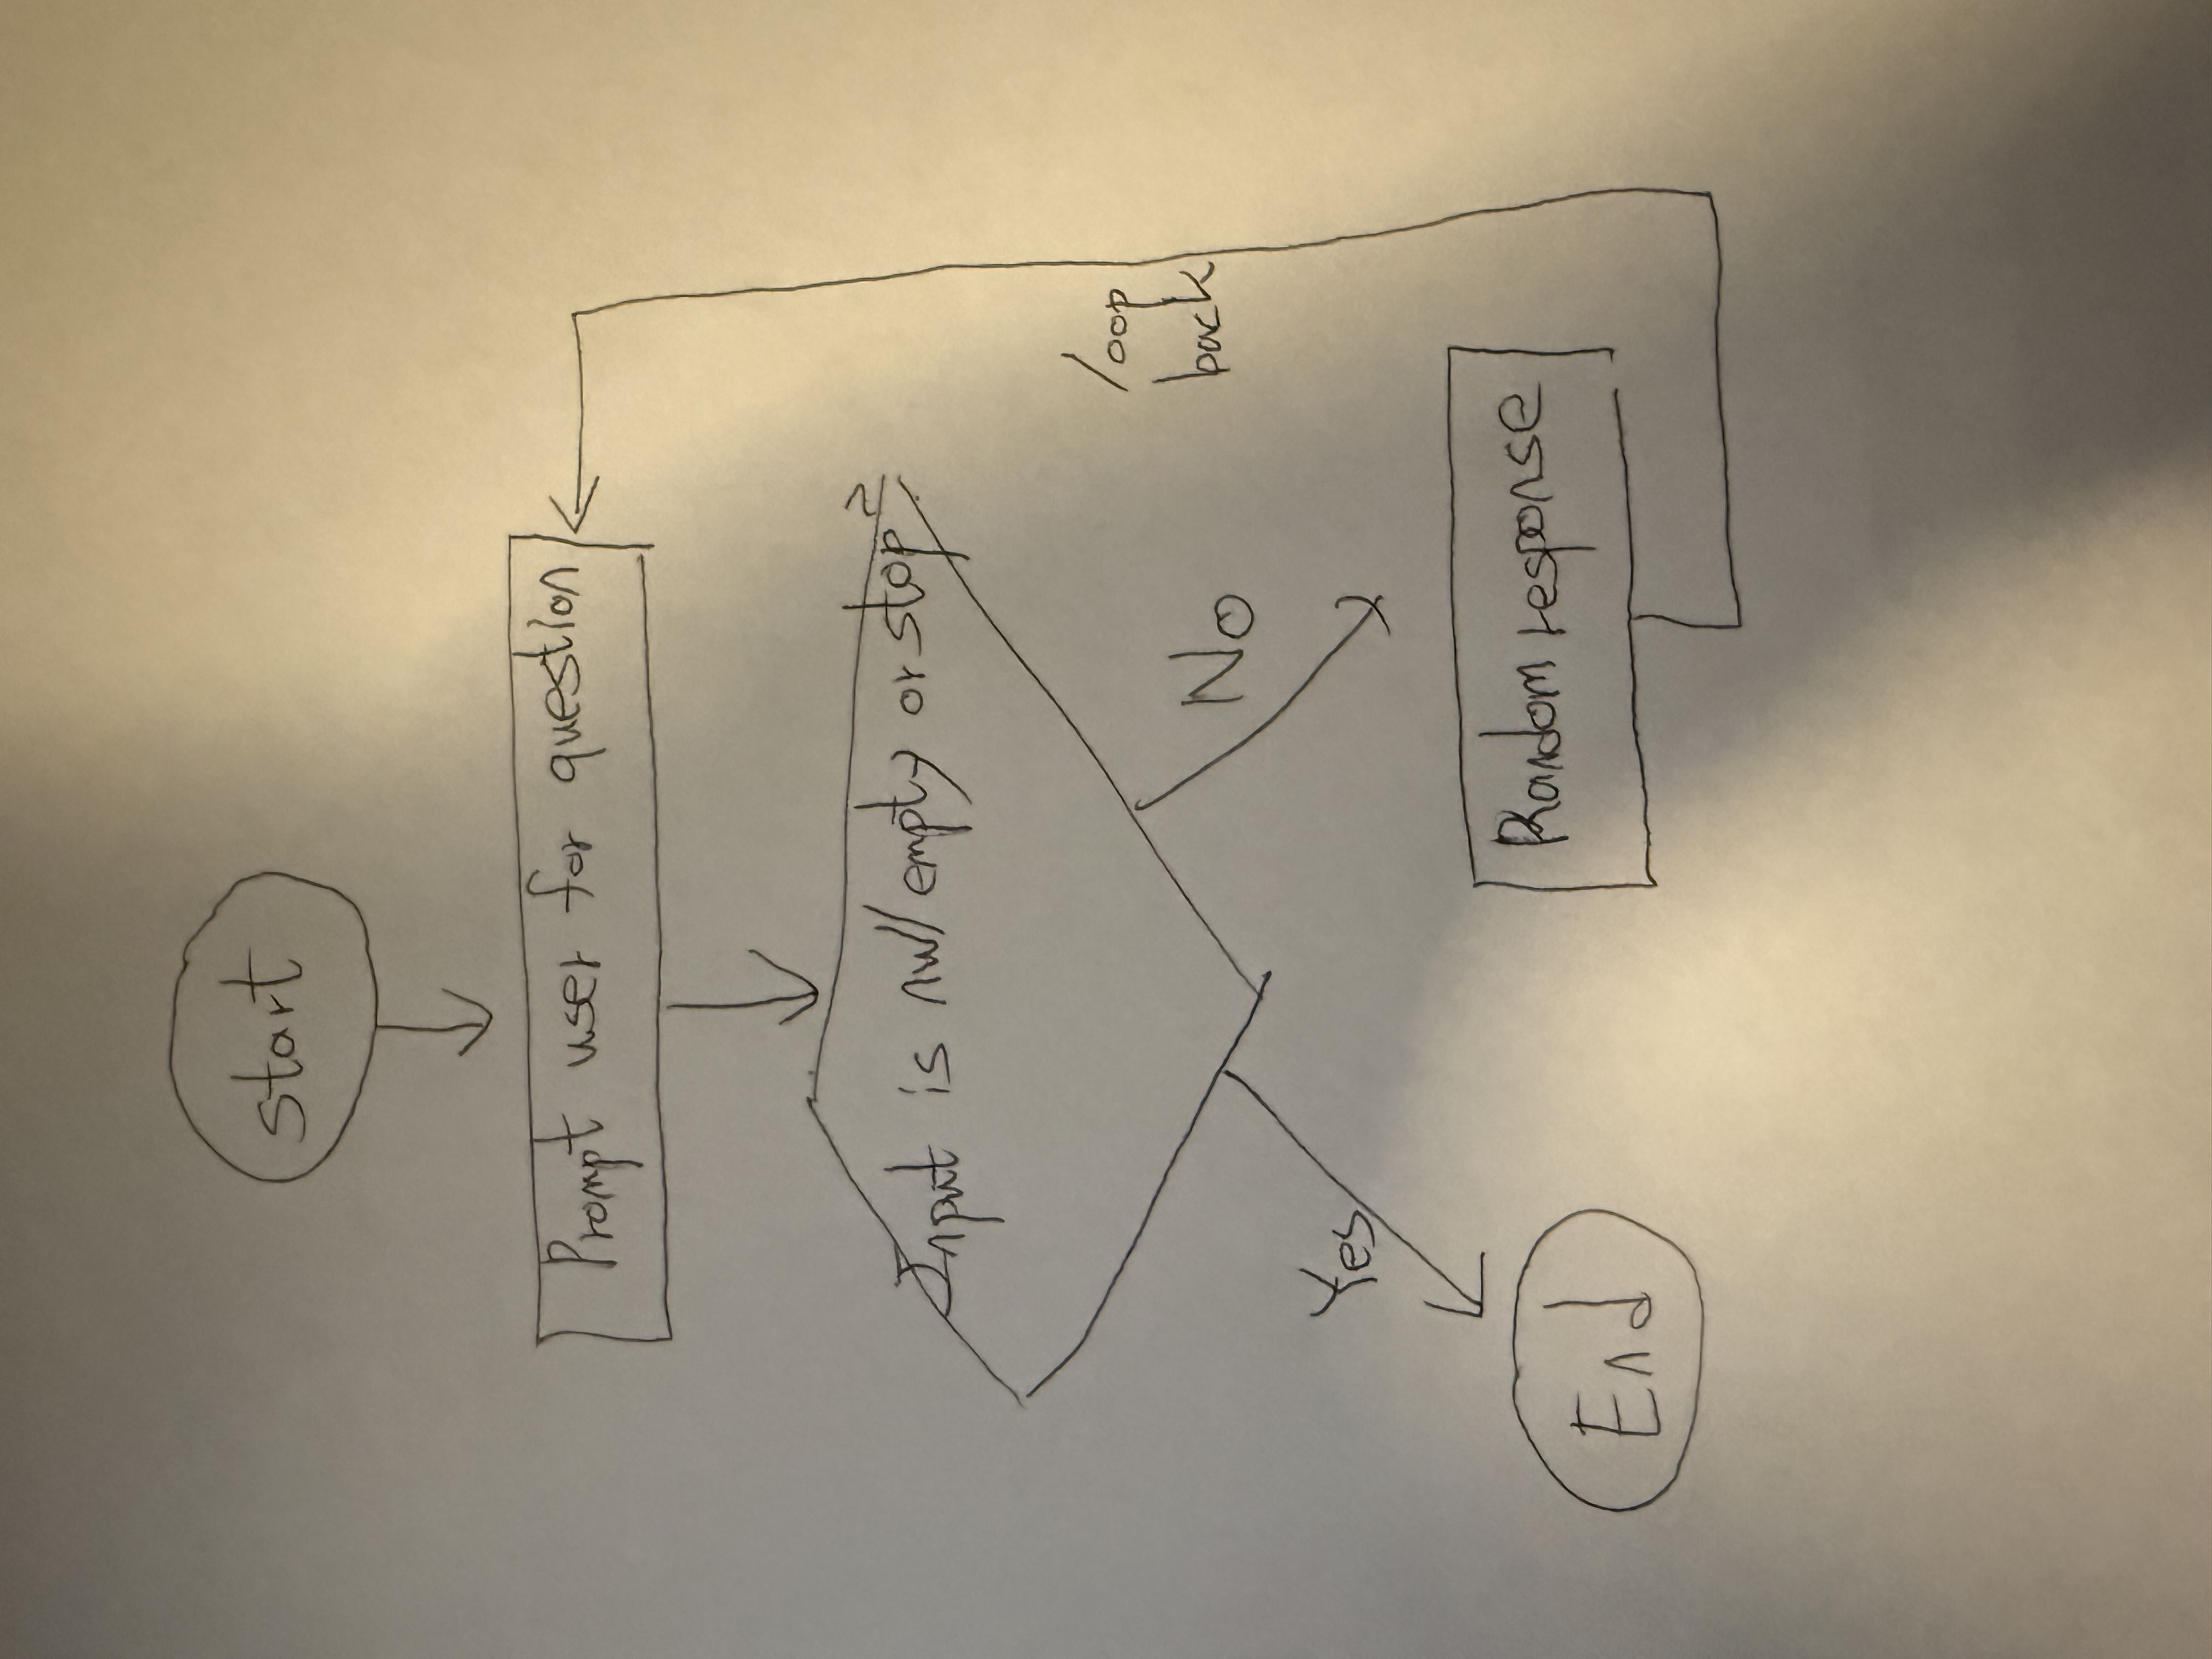 start
Prompt user for question
Input is null/empty or stop?
No
loop
back
Yes
Random response
End